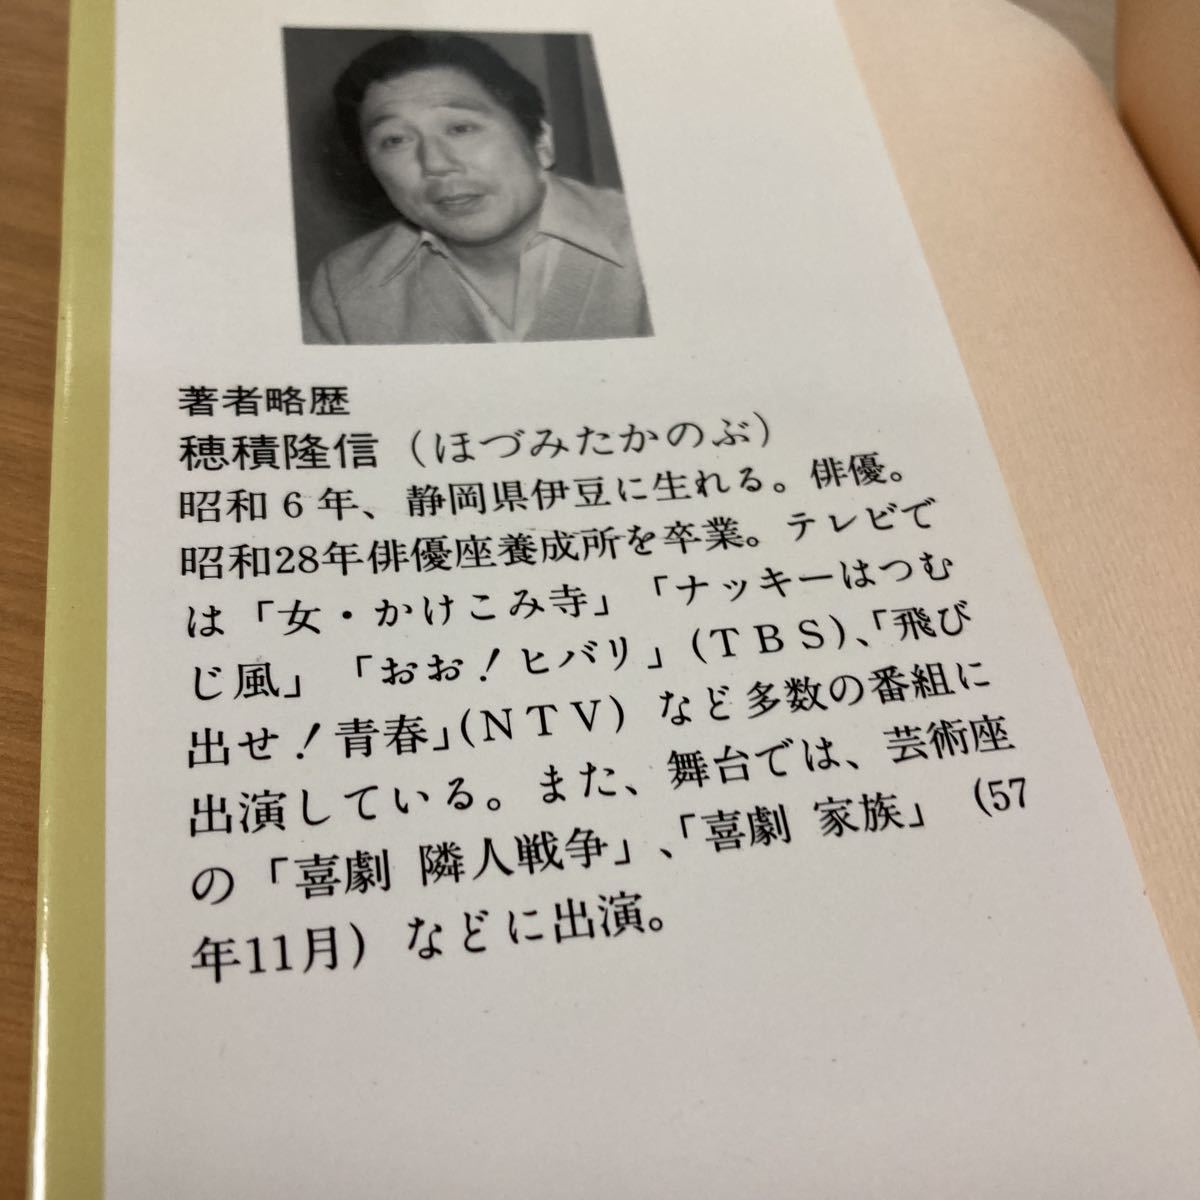 著者略歴
穂積隆信(ほづみたかのぶ)
昭和6年、静岡県伊豆に生れる。俳優。
昭和28年俳優座養成所を卒業。テレビで
は「女・かけこみ寺」「ナッキーはつむ
じ風」「おお!ヒバリ」(TBS)、「飛び
出せ!青春」(NTV)など多数の番組に
出演している。また、舞台では、芸術座
の「喜劇 隣人戦争」、「喜劇 家族」(57
年11月)などに出演。